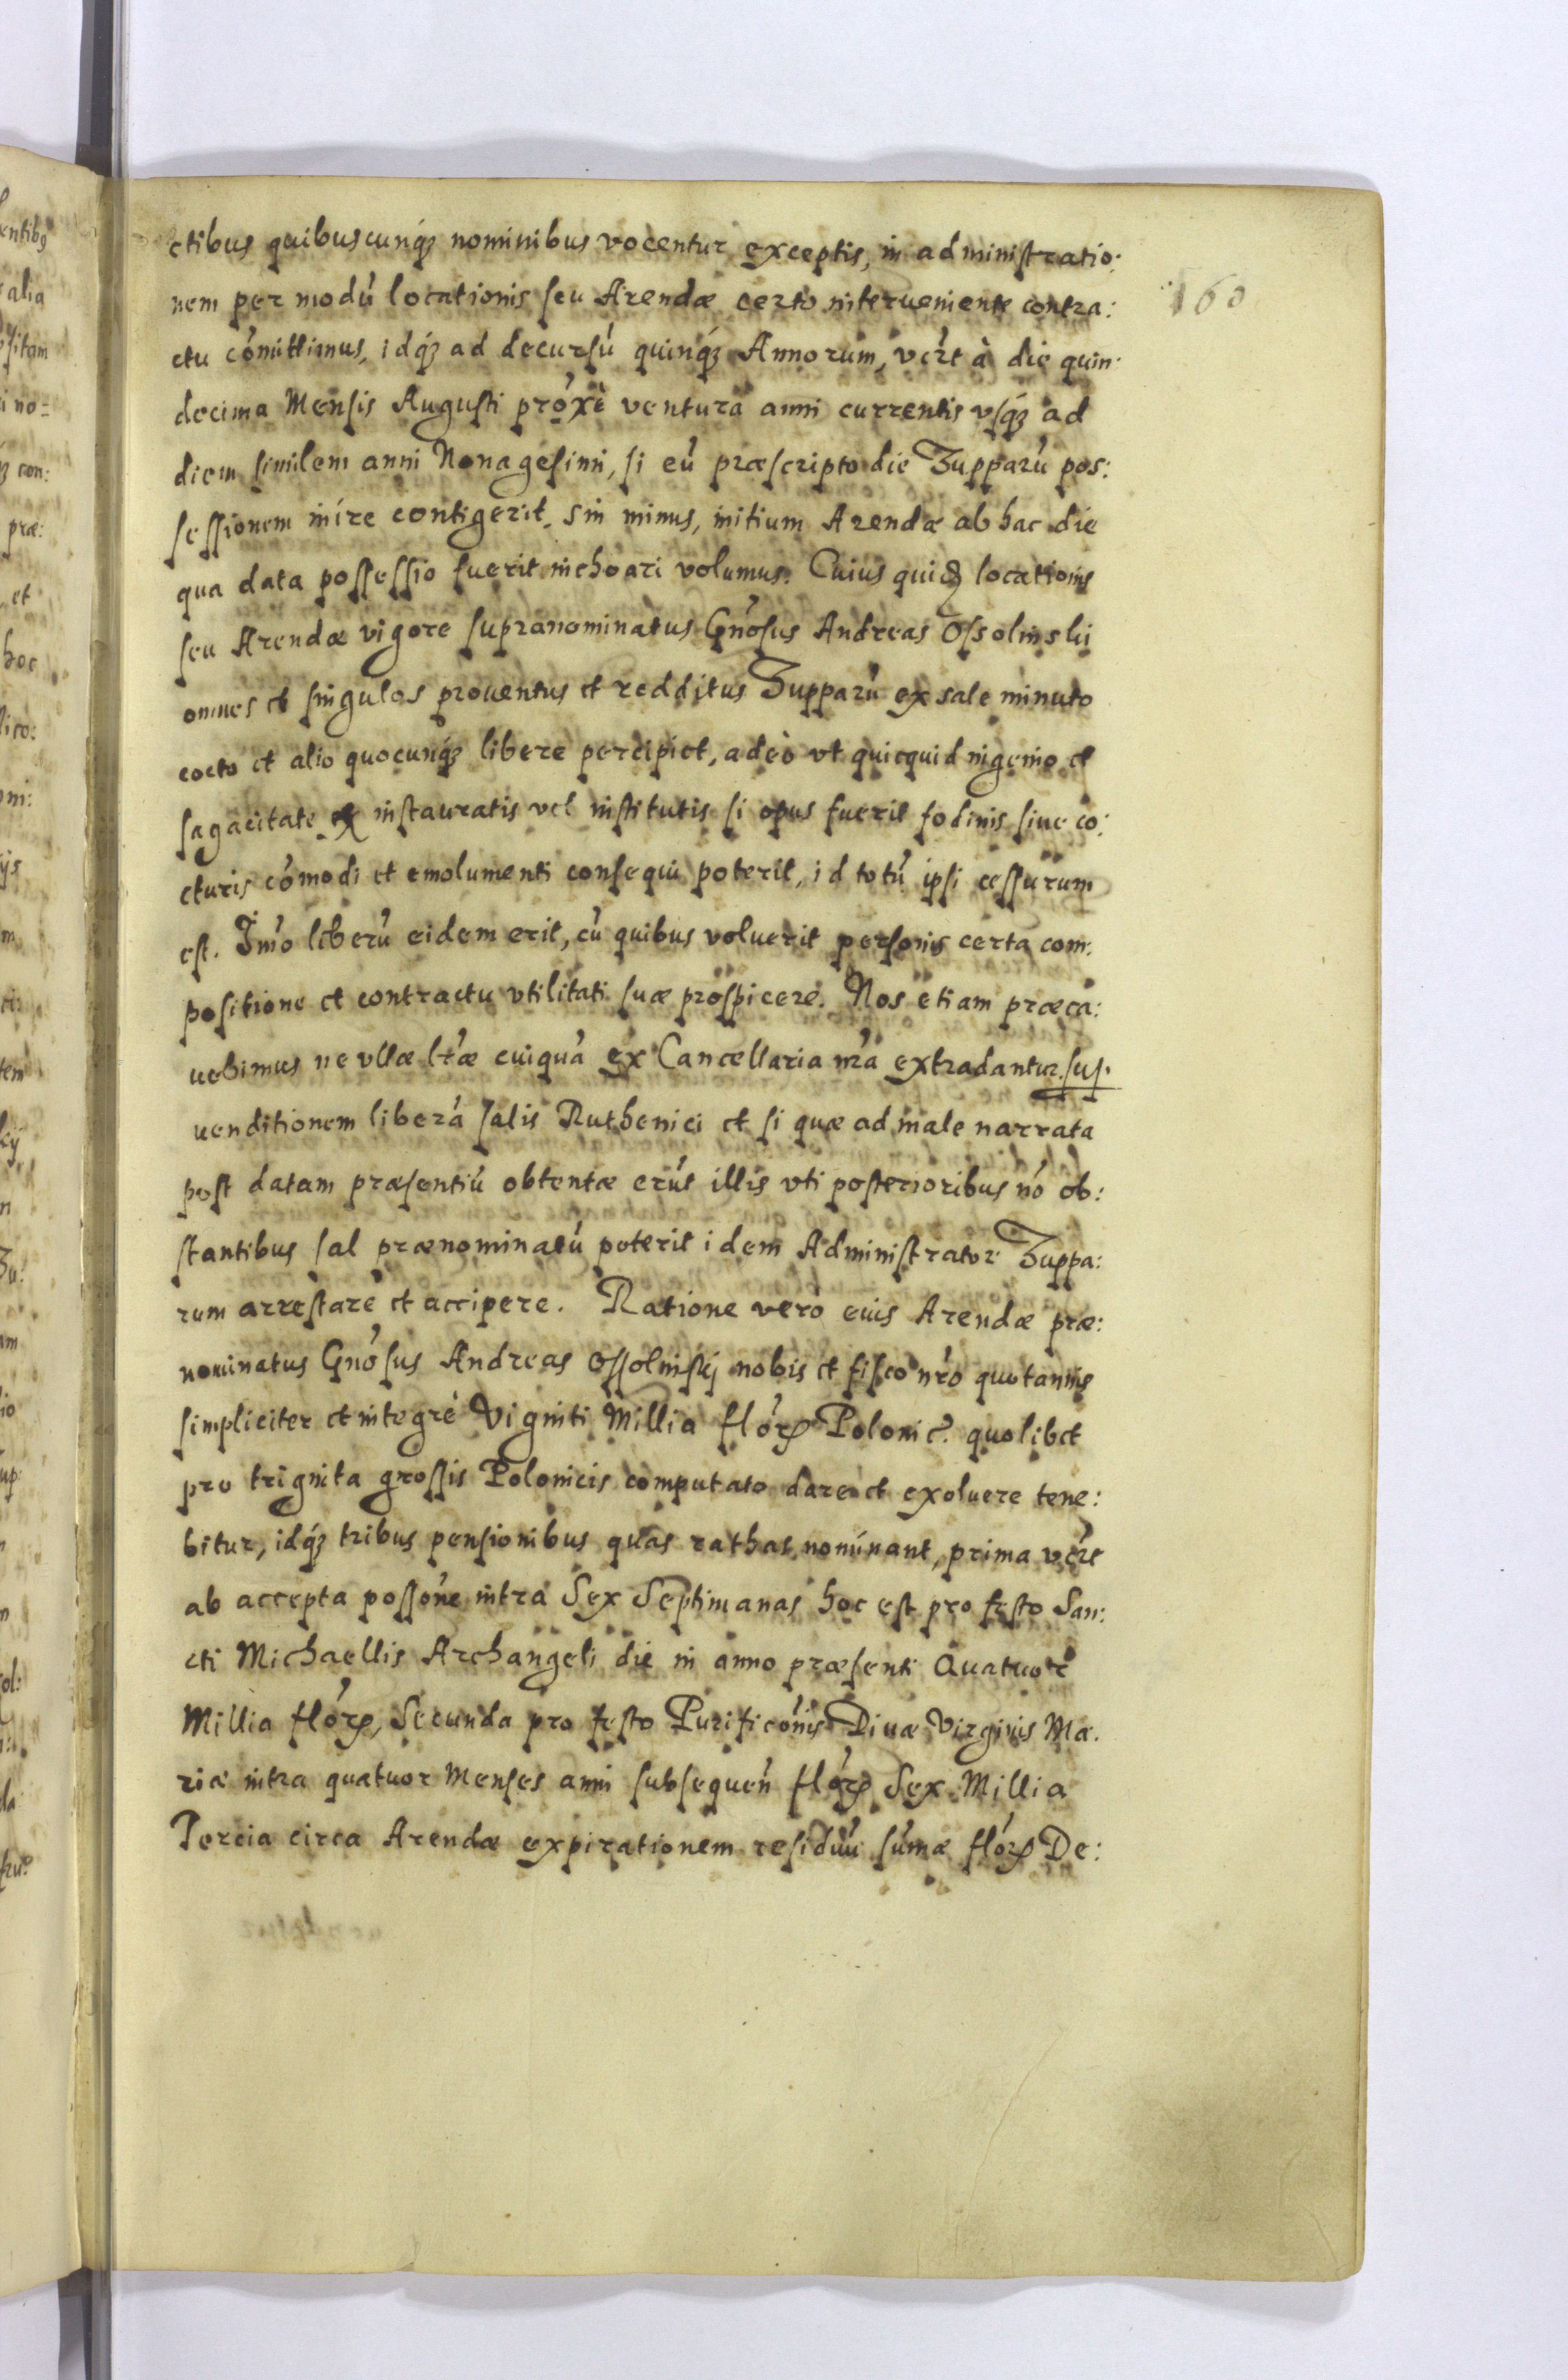 ctibus quibuscunq́ꝫ nominibus vocentur exceptis, in administratio:
160
nem per modú locationis seu Arendæ certo interueniente contra:
ctu cómittimus, idq́ꝫ ad decursú quinq́ꝫ Annorum, vért à die quin:
decima Mensis Augusti próxè ventura anni currentis vsq́ꝫ ad
diem similem anni Nonagesimi, si eú præscripto die Zupparú pos:
sessionem inire contigerit, sin minus, initium Arendæ ab hac die
qua data possessio fuerit inchoari volumus. Cuius quidꝫ locationis
seu Arendæ vigore supranominatus Gnósus Andreas Ossolinski
omnes et singulos prouentus et redditus Zupparú ex sale minuto
cocto et alio quocunq́ꝫ libere percipiet, adeò vt quicquid ingenio et
sagacitate ex instauratis vel institutis si opus fuerit fodinis siue co:
cturis cómodi et emolumenti consequi poterit, id totú ipsi cessurum
est. Imó liberú eidem erit, cú quibus voluerit personis certa com:
positione et contractu vtilitati suæ prospicere. Nos etiam præca:
uebimus ne vllæ lt́æ cuiquá ex Cancellaria nŕa extradantur sup.
uenditionem liberá salis Ruthenici et si quæ ad male narrata
post datam præsentiú obtentæ erút illis vti posterioribus nó ob:
stantibus sal prænominatú poterit idem Administrator Zuppa:
rum arrestare et accipere. Ratione verò eius Arendæ præ:
nominatus Gnósus Andreas Ossolinskj nobis et fisco nŕo quotannis
simpliciter et integrè Viginti Millia flóꝝ Polonic. quolibet
pro triginta grossis Polonicis computato dare et exoluere tene:
bitur, idq́ꝫ tribus pensionibus quas rathas nominant, prima vért
ab accepta possóne intra Sex Septimanas hoc est pro festo San:
cti Michaellis Archangeli die in anno præsenti Quatuor
Millia flóꝝ, Secunda pro festo Purificónis Diuæ Virginis Ma:
riæ intra quatuor Menses anni subsequeń flóꝝ Sex Millia
Tercia circa Arendæ expirationem residuú súmæ flóꝝ De: